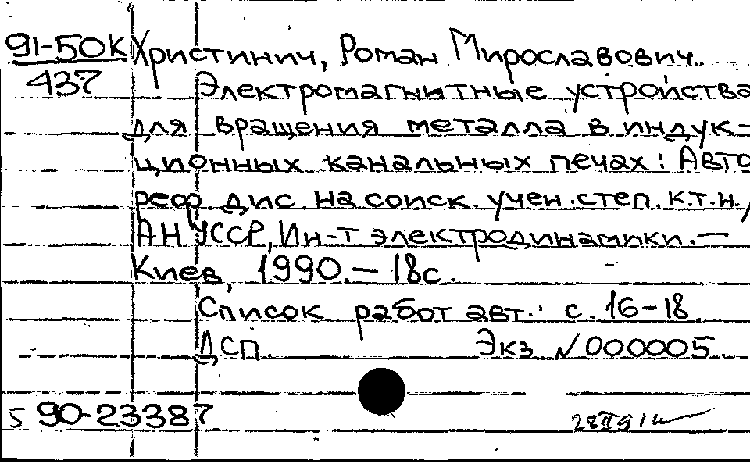 91-50К Христинич, Роман Мирославович.
437
Электромагнитные устройства
для вращения металла в индук-
ционных канальных печах: Авто
реф. дис. на соиск. учен. степ. к.т.н.,
АН УССР, Ин-т электродинамики. —
Киев, 1990. — 18с.
Список работ авт.: с. 16-18
ДСП Экз. №000005
5 90-23387